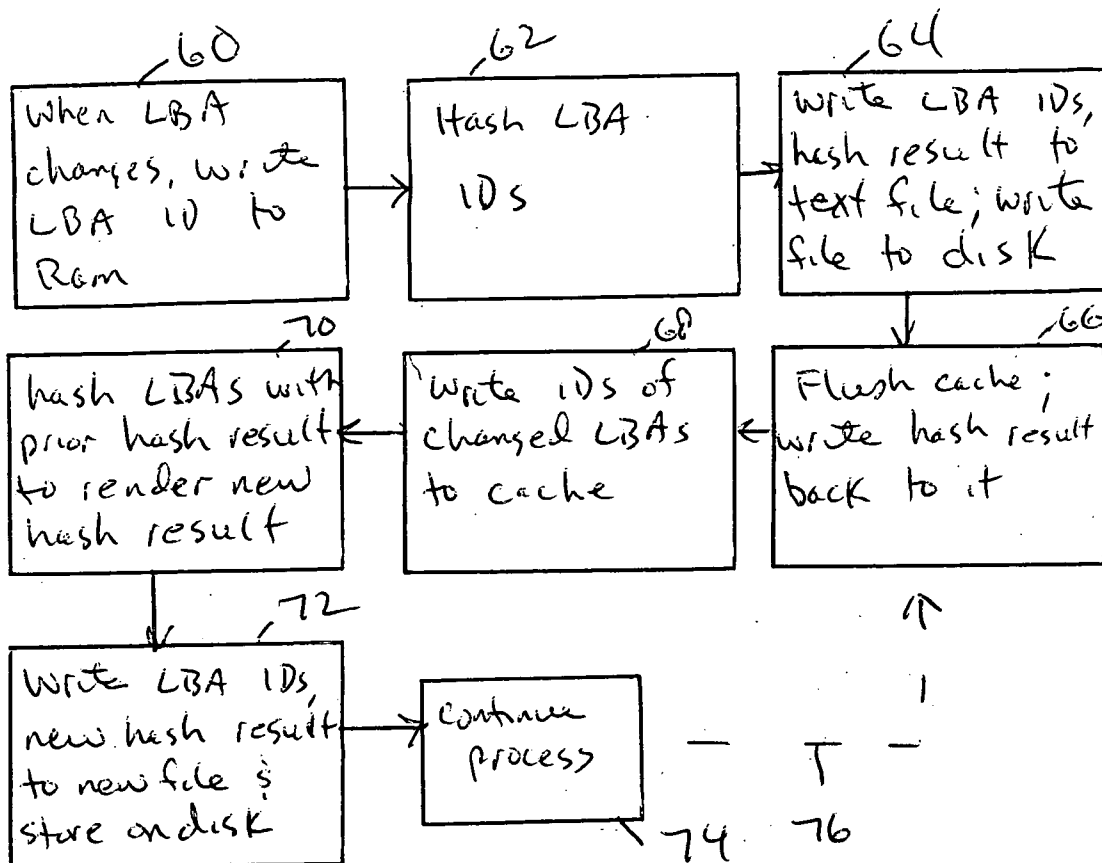 60
When LBA
changes, write
LBA ID to
Ram
62
Hash LBA
IDs
64
write LBA IDs,
hash result to
text file; write
file to disk
66
Flush cache;
write hash result
back to it
68
write IDs of
changed LBAs
to cache
70
hash LBAs with
prior hash result
to render new
hash result
72
Write LBA IDs,
new hash result
to new file &
store on disk
continue
process
74
76